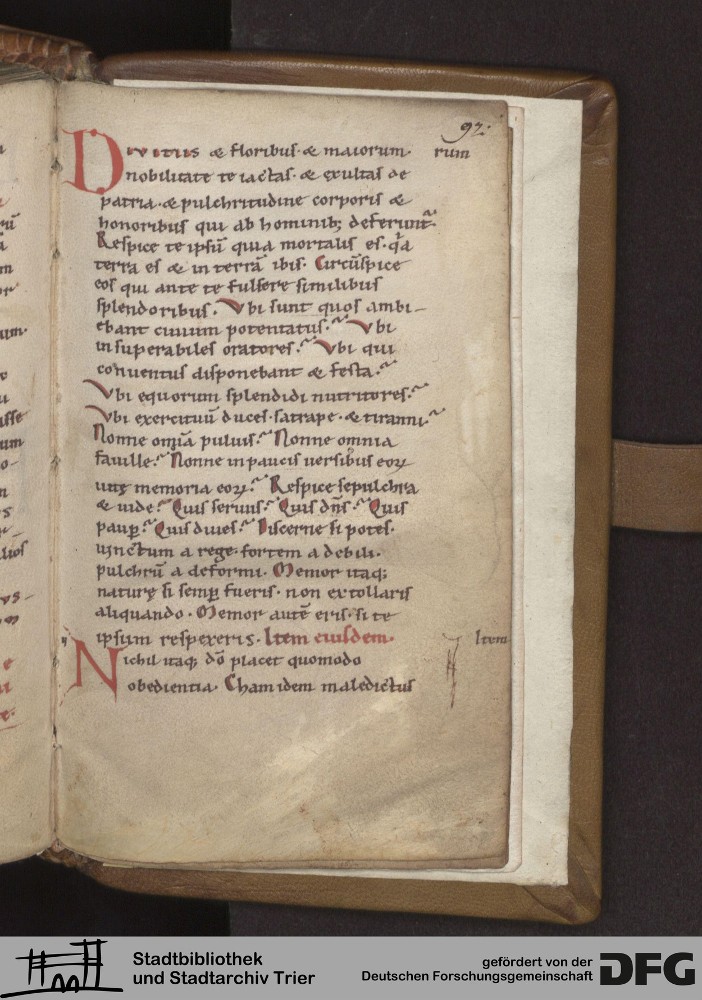 92.
Divitiis & floribus · & maiorum · rum
nobilitate te iactas · & exultas de
patria · & pulchritudine corporis &
honoribus qui ab hominib; deferunt̃.
Respice te ipsũ quia mortalis es · q̃a
terra es & in terrã ibis · Circũspice
eos qui ante te fulsere similibus
splendoribus. Vbi sunt quos ambi-
ebant ciuium potentatus? Vbi
insuperabiles oratores? Vbi qui
conuentus disponebant & festa?
Vbi equorum splendidi nutritores?
Vbi exercituũ duces · satrape · & tiranni?
Nonne omĩa puluis? Nonne omnia
fauille? Nonne in paucis uersibus eoꝝ
uitę memoria eoꝝ? Respice sepulchra
& uide? Quis seruus? Quis dñs? Quis
paup̲? Quis diues? Discerne si potes ·
uinctum a rege · fortem a debili ·
pulchrũ a deformi · Memor itaq;
naturę si semp̲ fueris · non extollaris
aliquando · Memor autẽ eris · si te
ipsum respexeris · Item eiusdem · Item
Nichil itaq; dõ placet quomodo
obedientia · Cham idem maledictus
Stadtbibliothek
und Stadtarchiv Trier
gefördert von der
Deutschen Forschungsgemeinschaft
DFG